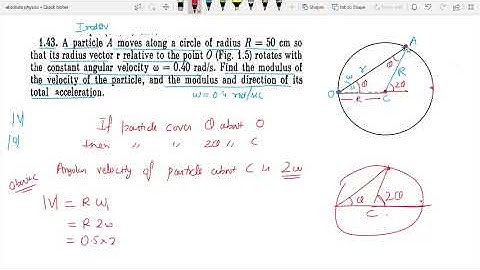 absolute physics • Quick twixer
Irodov
1.43. A particle A moves along a circle of radius R = 50 cm so
that its radius vector r relative to the point O (Fig. 1.5) rotates with
the constant angular velocity ω = 0.40 rad/s. Find the modulus of
the velocity of the particle, and the modulus and direction of its
total acceleration.
ω = 0.4 rad/sec
|V|
|a|
If particle cover θ about O
then " " 2θ " C
Angular velocity of particle about C is 2ω
|V| = R ω₁
= R 2ω
= 0.5×2
A
r
R
θ
2θ
O
R
C
θ
2θ
C